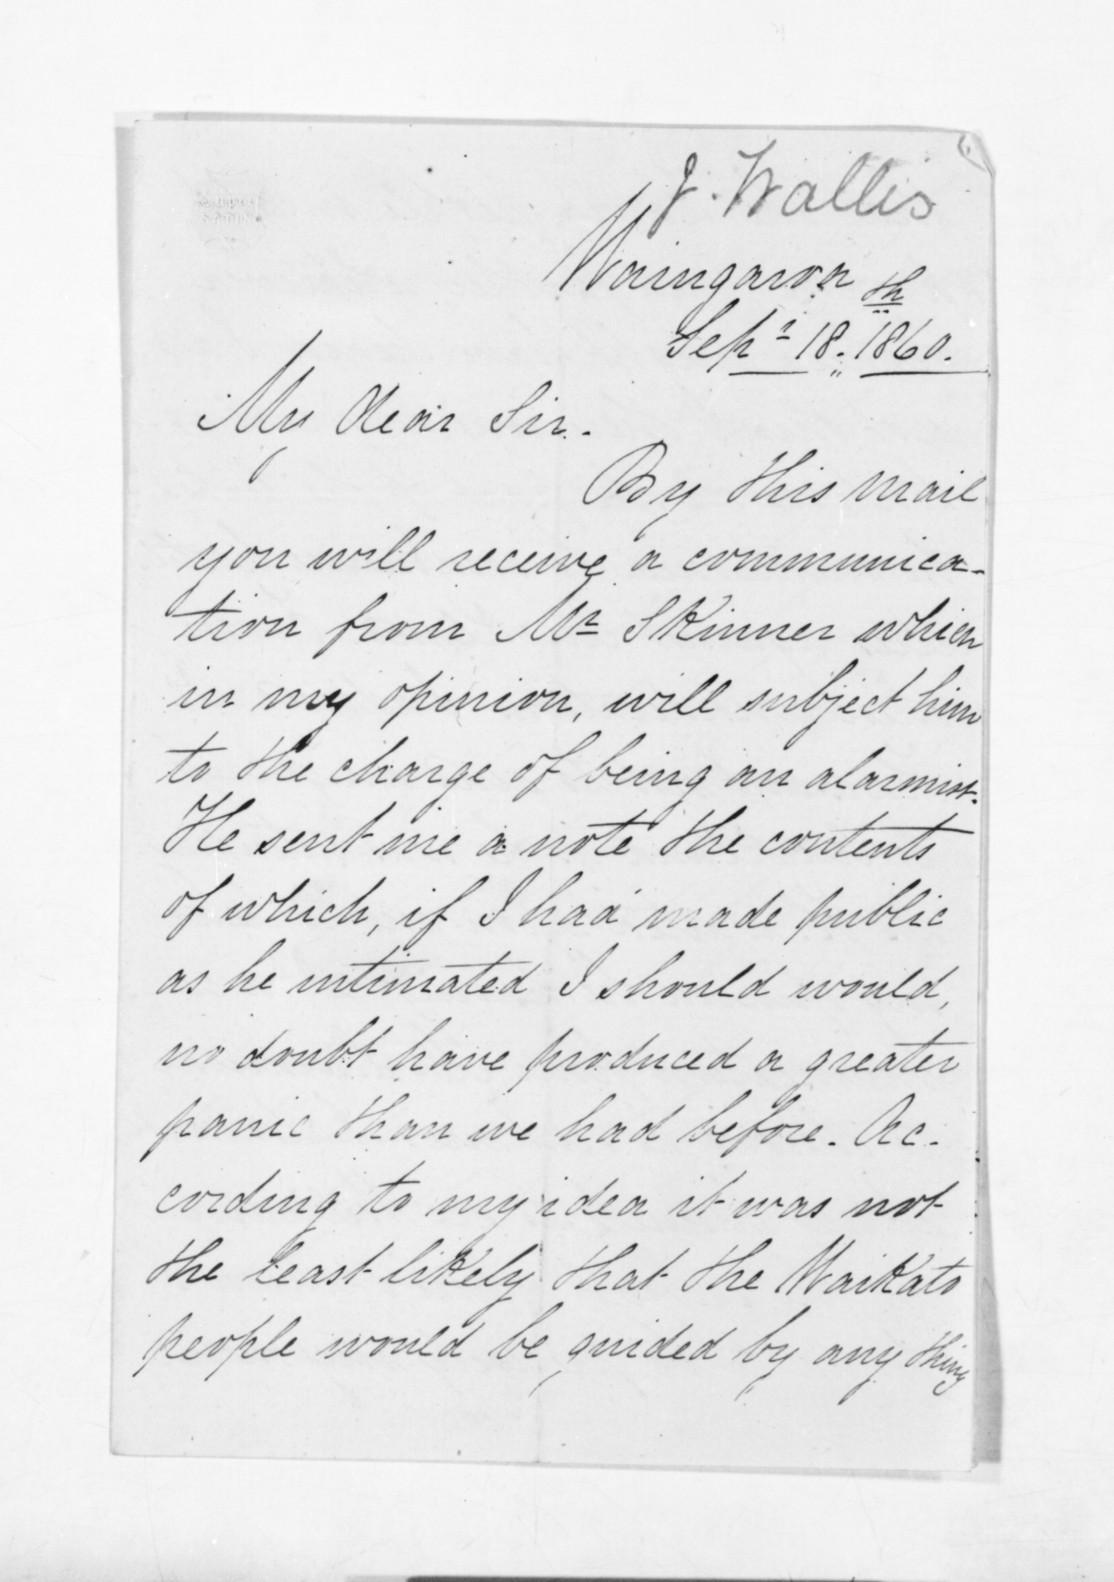 J. Wallis
Waingaroa
Sept 18th 1860.
My dear Sir.
By this mail
you will receive a communica-
tion from Mr Skinner which
in my opinion, will subject him
to the charge of being an alarmist.
He sent me a note the contents
of which, if I had made public
as he intimated I should would,
no doubt have produced a greater
panic than we had before. Ac-
cording to my idea it was not
the least likely that the Waikato
people would be guided by any thing